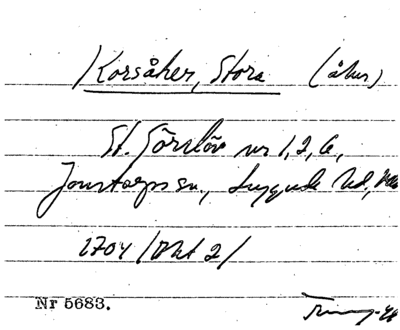 Korsåker, Stora (åker)
St. Görslöv nr 1, 2, 6,
Jonstorps sn., Luggude hd, 
1704 /Akt 2/
Nr 5683.